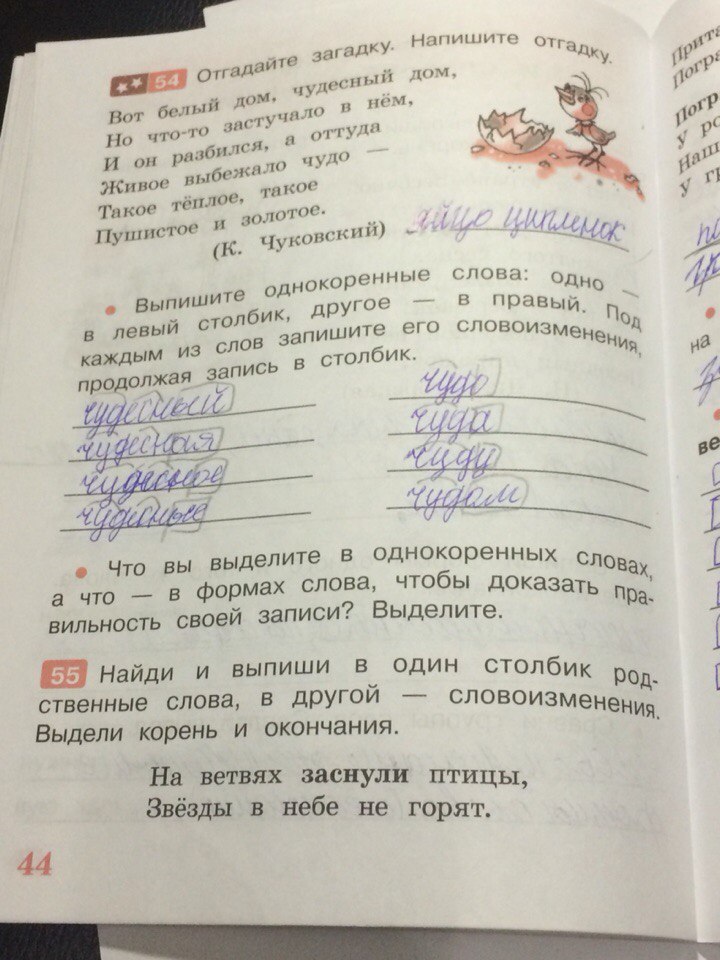 54 Отгадайте загадку. Напишите отгадку.
Вот белый дом, чудесный дом,
Но что-то застучало в нём,
И он разбился, а оттуда
Живое выбежало чудо —
Такое тёплое, такое
Пушистое и золотое.
(К. Чуковский) яйцо ципленок
• Выпишите однокоренные слова: одно —
в левый столбик, другое — в правый. Под
каждым из слов запишите его словоизменения,
продолжая запись в столбик.
чудесный чудо
чудесная чуда
чудесное чуду
чудесные чудом
• Что вы выделите в однокоренных словах,
а что — в формах слова, чтобы доказать пра-
вильность своей записи? Выделите.
55 Найди и выпиши в один столбик род-
ственные слова, в другой — словоизменения.
Выдели корень и окончания.
На ветвях заснули птицы,
Звёзды в небе не горят.
44
у
на